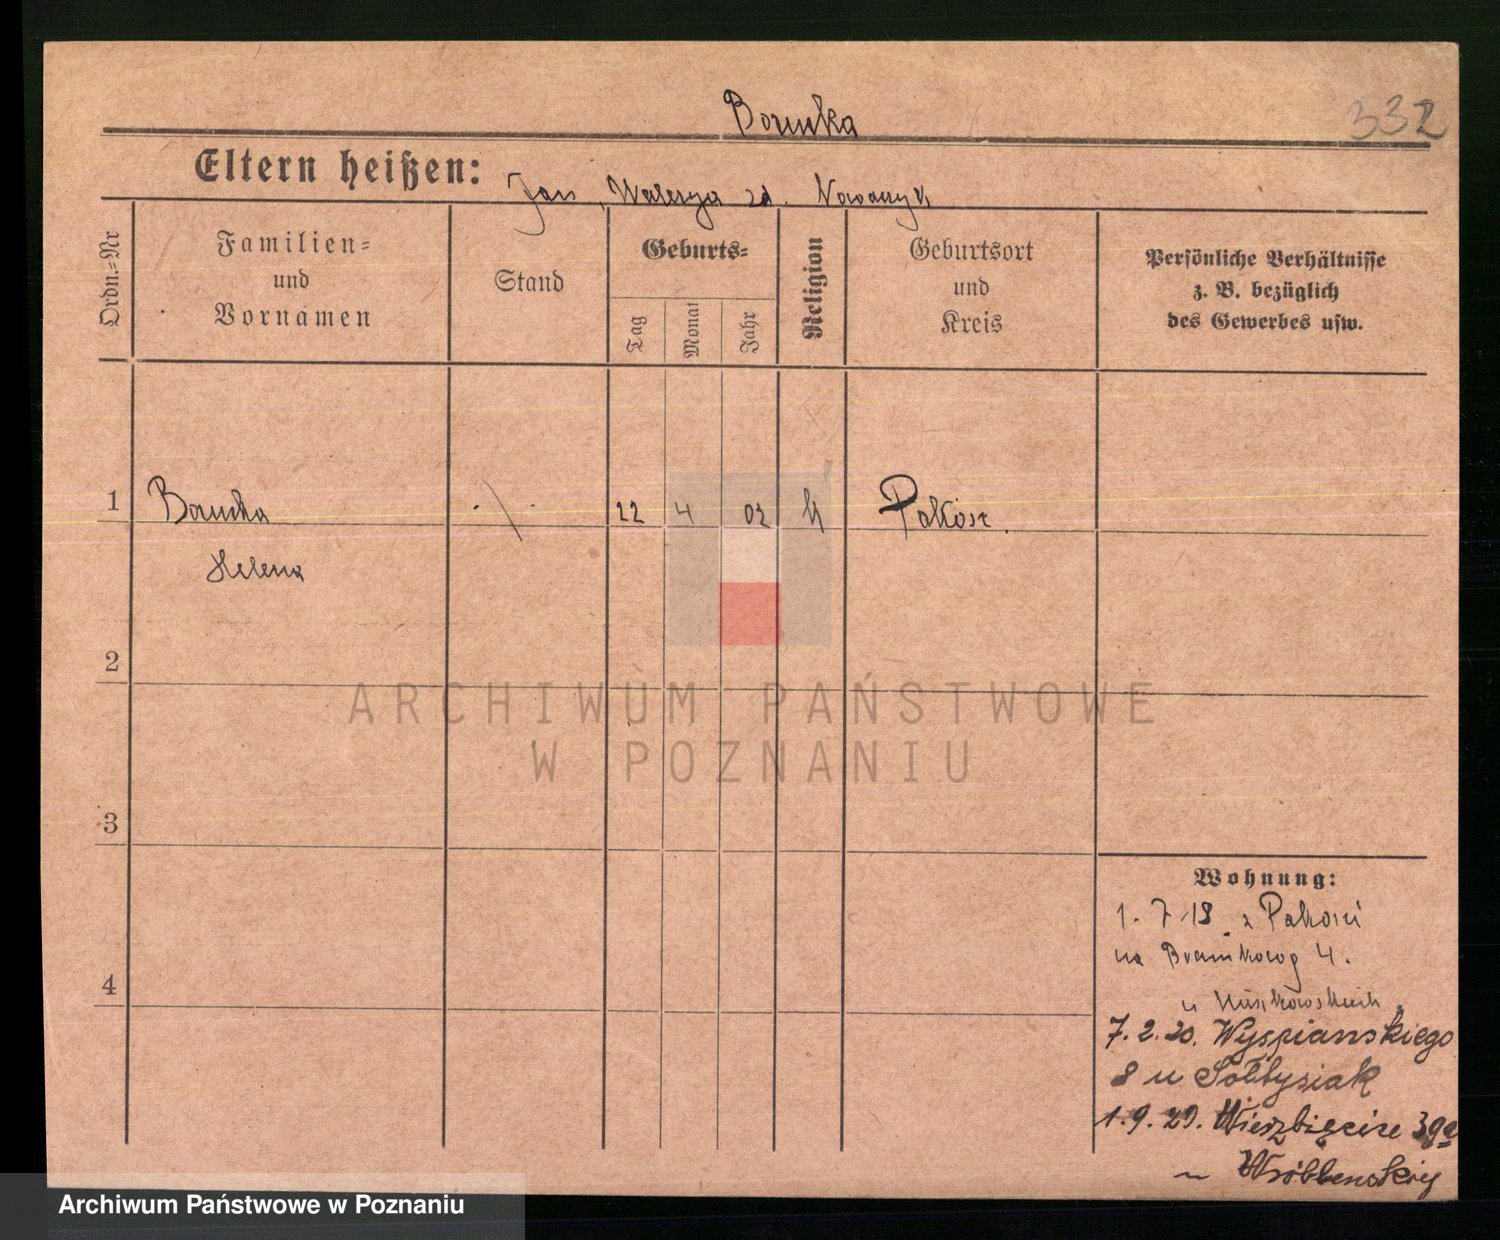 Borucka
332
Eltern heißen:
Jan, Walerya zd. Nowaczyk
Ordn.=Nr
Familien=
und
Vornamen
Stand
Geburts=
Tag
Monat
Jahr
Religion
Geburtsort
und
Kreis
Persönliche Verhältnisse
z. B. bezüglich
des Gewerbes usw.
1
Borucka
22 4 02
k
Pakość
Helena
2
ARCHIWUM PAŃSTWOWE
W POZNANIU
3
Wohnung:
1. 7 18. z Pakości
na 4.
4
u
7. 2. 20. Wyspianskiego
8 u Sołtysiak
1. 9. 29. Wierzbięcice
u
Archiwum Państwowe w Poznaniu